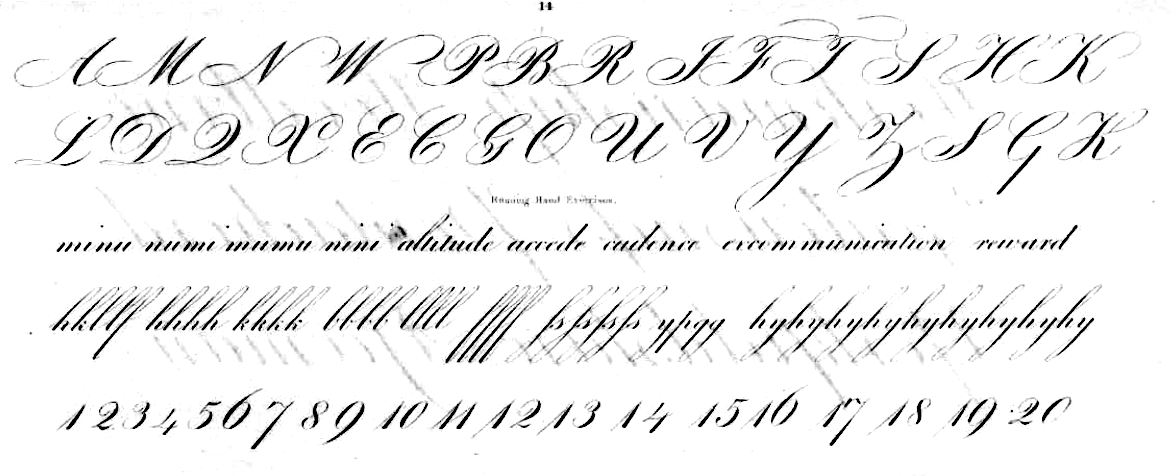 14
A M N W P B R I F T S H K
L D Q X E C G O U V Y Z S G K
Running Hand Exercises.
minu numimumu nini altitude accede cadence excommunication reward
hkllf hhhh kkkk bbbb llll ffff fsfsfsfs ypgg hyhyhyhyhyhyhyhyhy
1 2 3 4 5 6 7 8 9 10 11 12 13 14 15 16 17 18 19 20